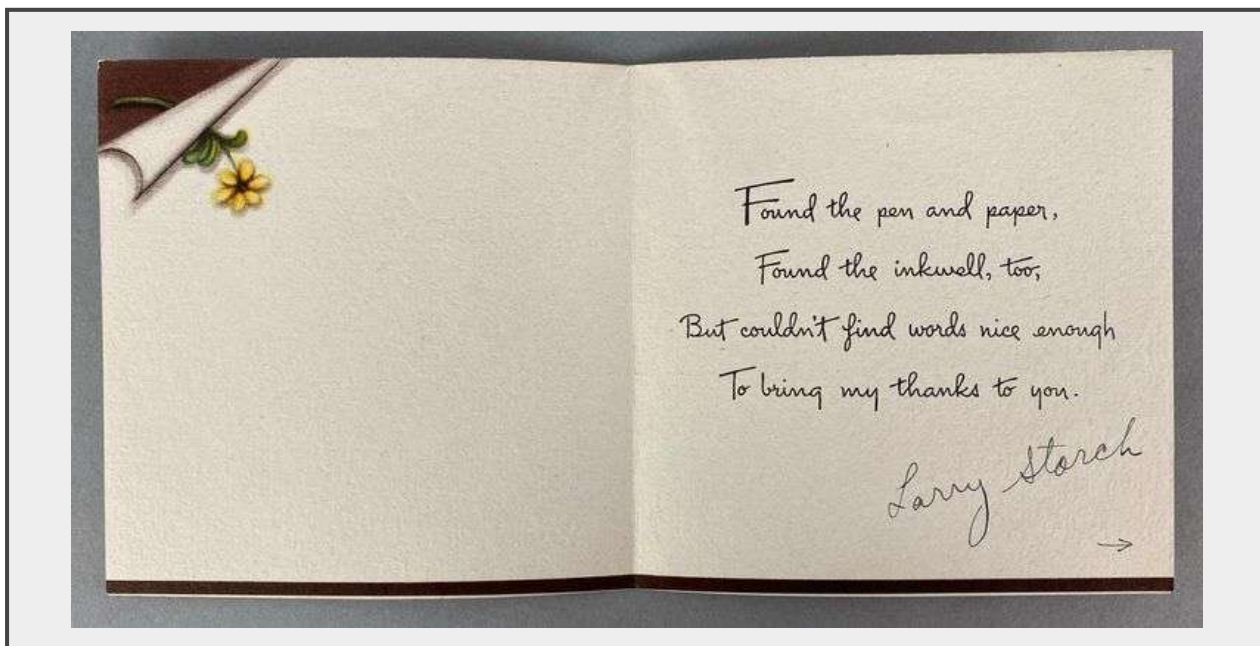 Found the pen and paper,
Found the inkwell, too,
But couldn't find words nice enough
To bring my thanks to you.
Larry Storch